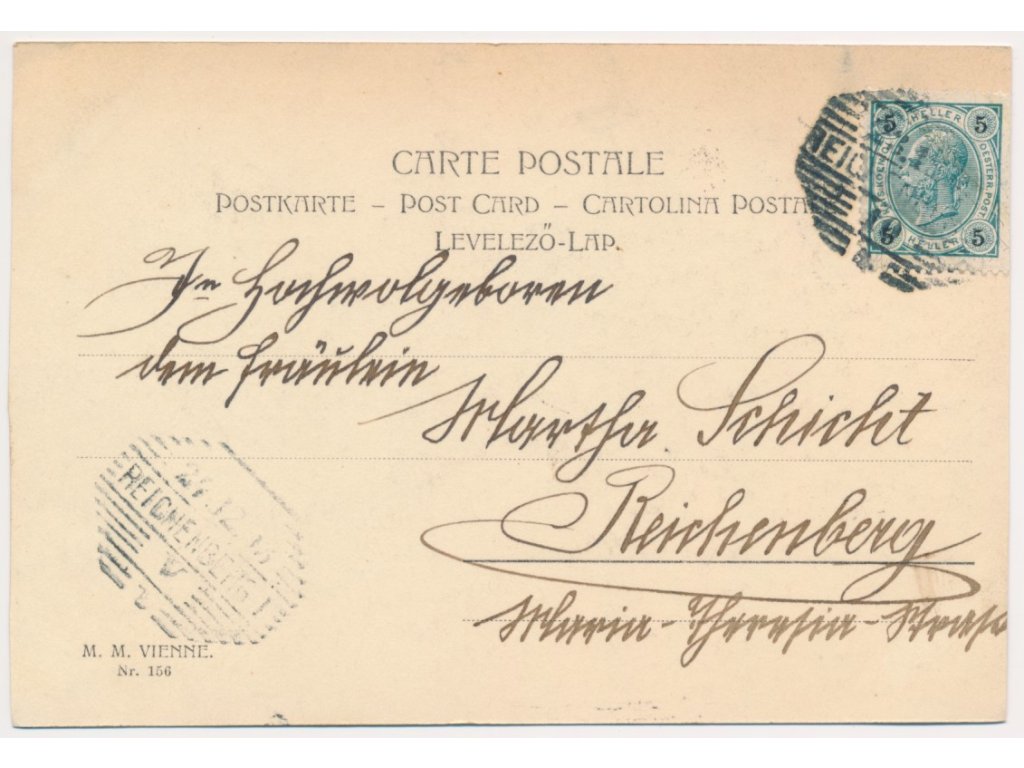 CARTE POSTALE
POSTKARTE – POST CARD – CARTOLINA POSTA
LEVELEZŐ-LAP.
5 HELLER 5
OESTERR. POST.
5 HELLER 5
REIC
Hochwolgeboren
dem Fräulein
Martha Schicht
Reichenberg
Maria-Theresia-Strasse
REICHENBERG 1
V
M. M. VIENNE.
Nr. 156